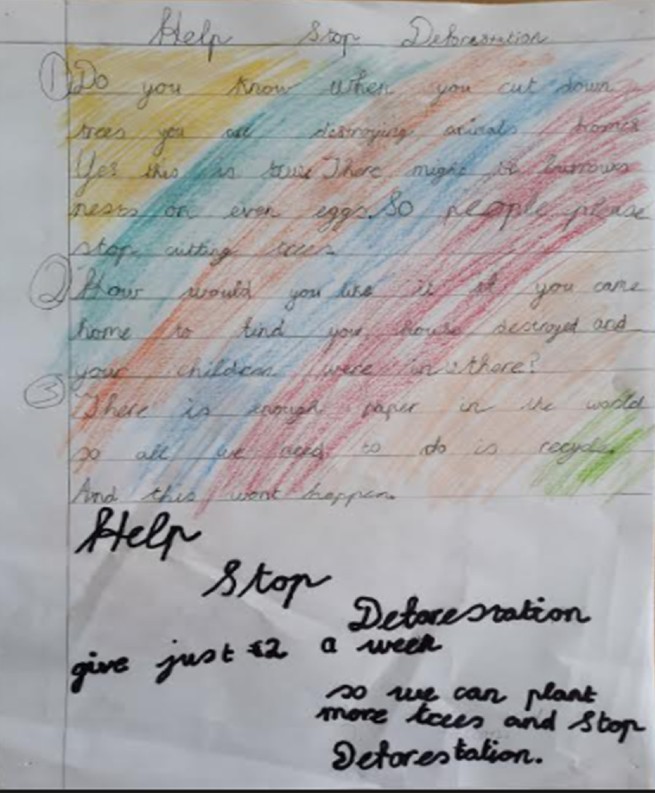 Help Stop Deforestation
① Do you know when you cut down
trees you are destroying animals homes
Yes this is true There might be burrows
nests or even eggs. So people please
stop cutting trees
② How would you like it if you came
home to find your house destroyed and
your children were in there?
③ There is enough paper in the world
so all we need to do is recycle.
And this wont happen.
Help
Stop
Deforestation
give just £2 a week
so we can plant
more trees and Stop
Deforestation.